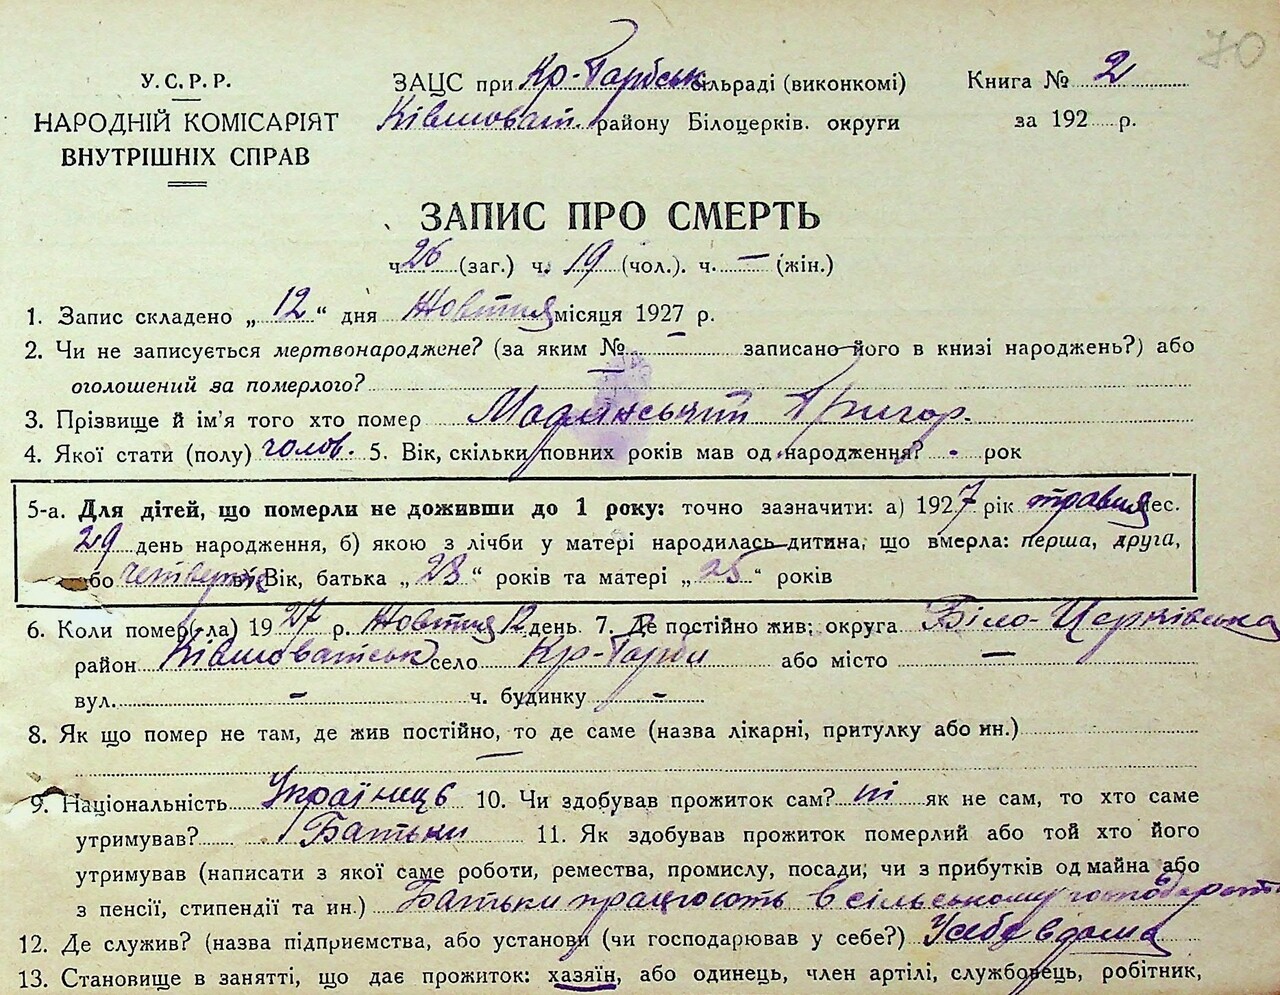 70
У.С.Р.Р.
НАРОДНІЙ КОМІСАРІЯТ
ВНУТРІШНІХ СПРАВ
ЗАЦС при Кр-Гарбськ сільраді (виконкомі)
Ківшоват. району Білоцерків. округи
Книга № 2
за 192 р.
ЗАПИС ПРО СМЕРТЬ
ч. 26 (заг.) ч. 19 (чол.). ч. — (жін.)
1. Запис складено „ 12 “ дня Жовтня місяця 1927 р.
2. Чи не записується мертвонароджене? (за яким № — записано його в книзі народжень?) або
оголошений за померлого?
3. Прізвище й ім'я того хто помер Григор.
4. Якої стати (полу) чолов. 5. Вік, скільки повних років мав од народження? - рок
5-а. Для дітей, що померли не доживши до 1 року: точно зазначити: а) 1927 рік травня мес.
29 день народження, б) якою з лічби у матері народилась дитина, що вмерла: перша, друга,
або в) Вік, батька „ 28 “ років та матері „ 25 “ років
6. Коли помер(-ла) 1927 р. Жовтня 12 день 7. Де постійно жив: округа Біло-Церківська
район Ківшоватськ село Кр-Гарби або місто —
вул. - ч. будинку -
8. Як що помер не там, де жив постійно, то де саме (назва лікарні, притулку або ин.)
—
9. Національність Українець 10. Чи здобував прожиток сам? ні як не сам, то хто саме
утримував? Батьки 11. Як здобував прожиток померлий або той хто його
утримував (написати з якої саме роботи, ремества, промислу, посади; чи з прибутків од майна або
з пенсії, стипендії та ин.) Батьки працюють в сільському
12. Де служив? (назва підприємства, або установи (чи господарював у себе?) У себе вдома
13. Становище в занятті, що дає прожиток: хазяїн, або одинець, член артілі, службовець, робітник,